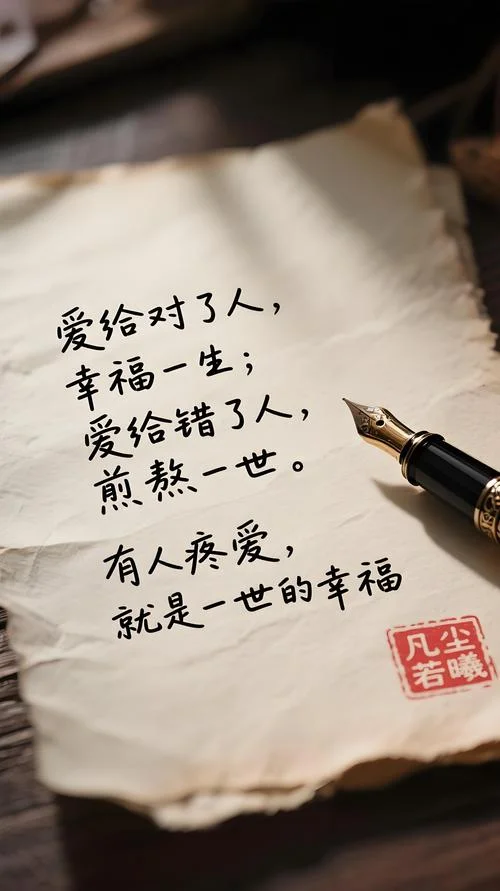 爱给对了人，
幸福一生；
爱给错了人，
煎熬一世。
有人疼爱，
就是一世的幸福
凡尘
若曦